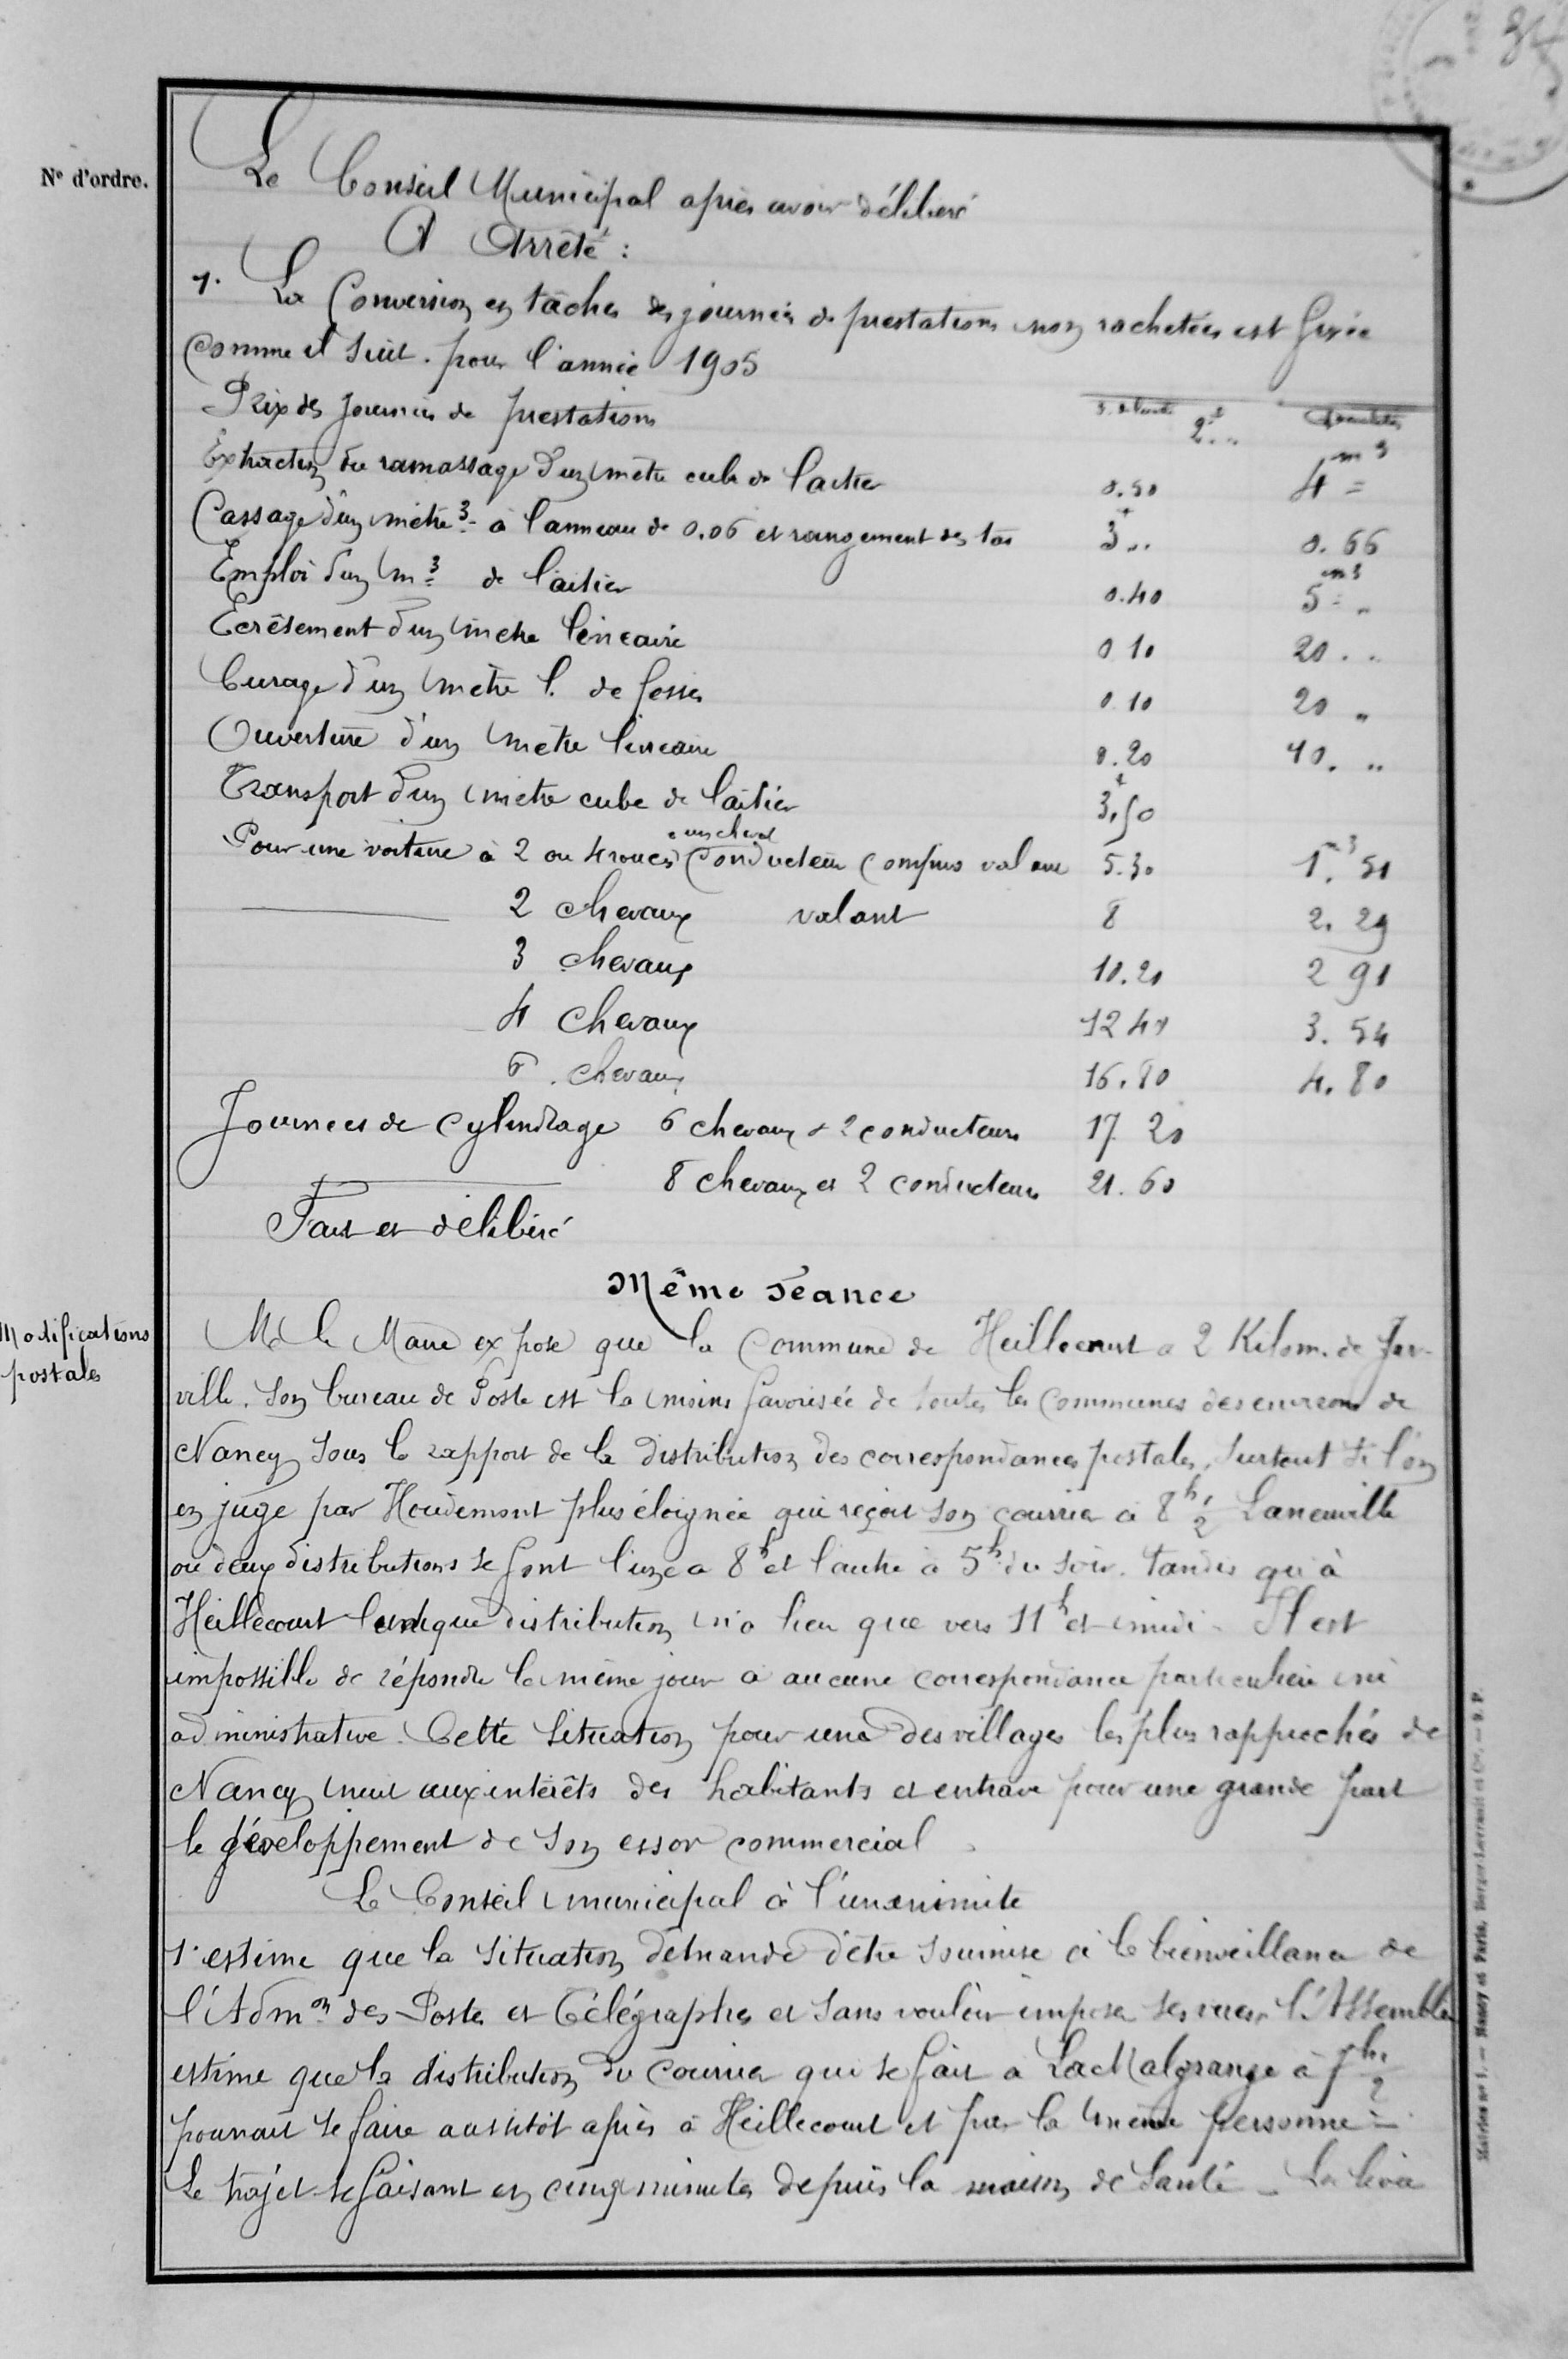 N° d'ordre.
Le Conseil Municipal après avoir délibéré
A Arrêté :
1. La Conversion en tâches des journées de prestations non rachetées est fixée
Comme il suit. pour l'année 1905
Prix des Journées de prestations 2f..
Extraction ou ramassage d'un mètre cube de laitier 0.50 4 m3 =
Cassage d'un mètre 3 à l'anneau de 0.06 et rangement des tas 3f.. 0.66
Emploi d'un m3 de laitier 0.40 5 m3 "
Ecrêtement d'un mètre linéaire 0 10 20 . ..
Curage d'un mètre l. de fossés 0.10 20 "
Ouverture d'un mètre linéaire 0.20 10. "
Transport d'un mètre cube de laitier 3f,50
Pour une voiture à 2 ou 4 roues à un cheval Conducteur Compris valeur 5.30 1.m3 51
2 chevaux valant 8 2. 29
3 chevaux 10.20 2 91
4 chevaux 12 40 3. 54
6 . chevaux 16.80 4. 80
Journées de cylindrage 6 chevaux & 2 conducteurs 17 20
8 chevaux et 2 conducteurs 21. 60
Fait et délibéré
Même séance
Modifications
postales
M le Maire expose que la Commune de Heillecourt a 2 Kilom. de Jar-
ville. Son bureau de Poste est la moins favorisée de toutes les Communes des environs de
Nancy sous le rapport de la distribution des correspondances postales, surtout si l'on
en juge par Houdemont plus éloignée qui reçoit son courrier à 8h 1/2 Laneuville
où deux distributions se font l'une a 8h et l'autre à 5h du soir. tandis qu'à
Heillecourt l'unique distribution n'a lieu que vers 11h et midi - Il est
impossible de répondre le même jour à aucune correspondance particulière ni
administrative. Cette situation pour une des villages les plus rapprochés de
Nancy nuit aux intérêts des habitants et entrave pour une grande part
le développement de son essor commercial
Le Conseil municipal à l'unanimité
1° estime que la situation demande d'être soumise à la bienveillance de
l'Admon des Postes et Télégraphes et sans vouloir imposer ses vues, l'Assemblée
estime que la distribution du Courrier qui se fait à La Malgrange à 7h. 1/2
pourrait se faire aussitôt après à Heillecourt et par la même personne -
Le trajet se faisant en cinq minutes depuis la maison de Santé - La levée